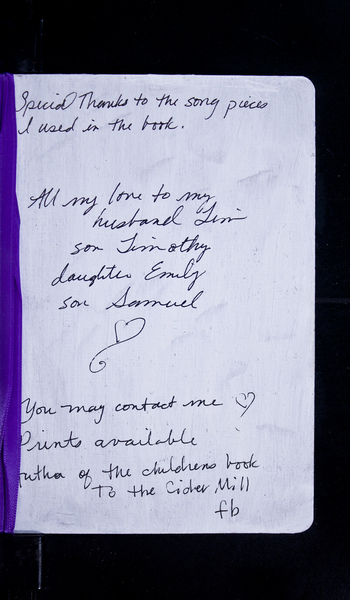 Special Thanks to the song pieces
I used in the book.
All my love to my
husband Tim
son Timothy
daughter Emily
son Samuel
You may contact me ♡
Prints available
author of the childrens book
To the Cider Mill
fb